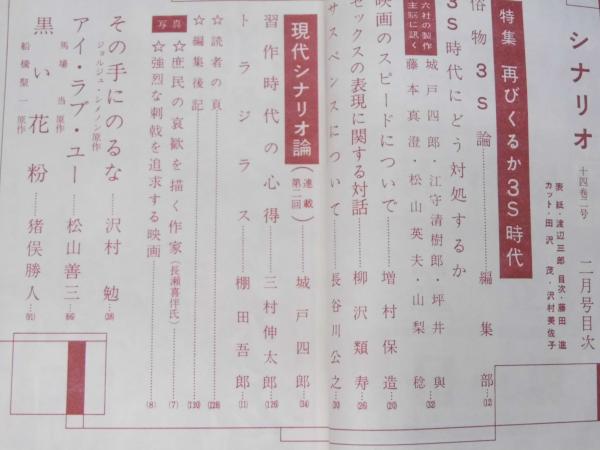 シナリオ
十四巻二号
二月号目次
表紙・渡辺三郎 目次・藤田進
カット・田沢 茂・沢村美佐子
特集 再びくるか3S時代
俗物3S論……編集部…(12)
3S時代にどう対処するか
六社の製作
主脳に訊く
城戸四郎・江守清樹郎・坪井與
藤本真澄・松山英夫・山梨稔…(32)
映画のスピードについて…増村保造…(20)
セックスの表現に関する対話…柳沢類寿…(26)
サスペンスについて…長谷川公之
現代シナリオ論(連載第二回)…城戸四郎…(34)
習作時代の心得…三村伸太郎…(126)
トラジラス…棚田吾郎…(11)
☆読者の頁…(128)
☆編集後記…(130)
写真
☆庶民の哀歓を描く作家(長瀬喜伴氏)…(7)
☆強烈な刺戟を追求する映画…(8)
その手にのるな…沢村勉
ジョルジュ・シメノン原作
アイ・ラブ・ユー…松山善三
馬場当原作
黒い花粉…猪俣勝人
船橋聖一原作